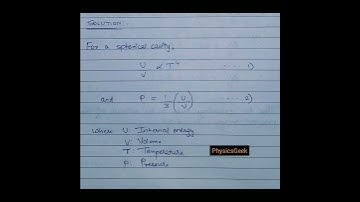 SOLUTION:
For a spherical cavity,
U/V ∝ T⁴ ..... 1)
and P = 1/3 (U/V) ..... 2)
where U Internal energy
V Volume
T Temperature
P Pressure
PhysicsGeek